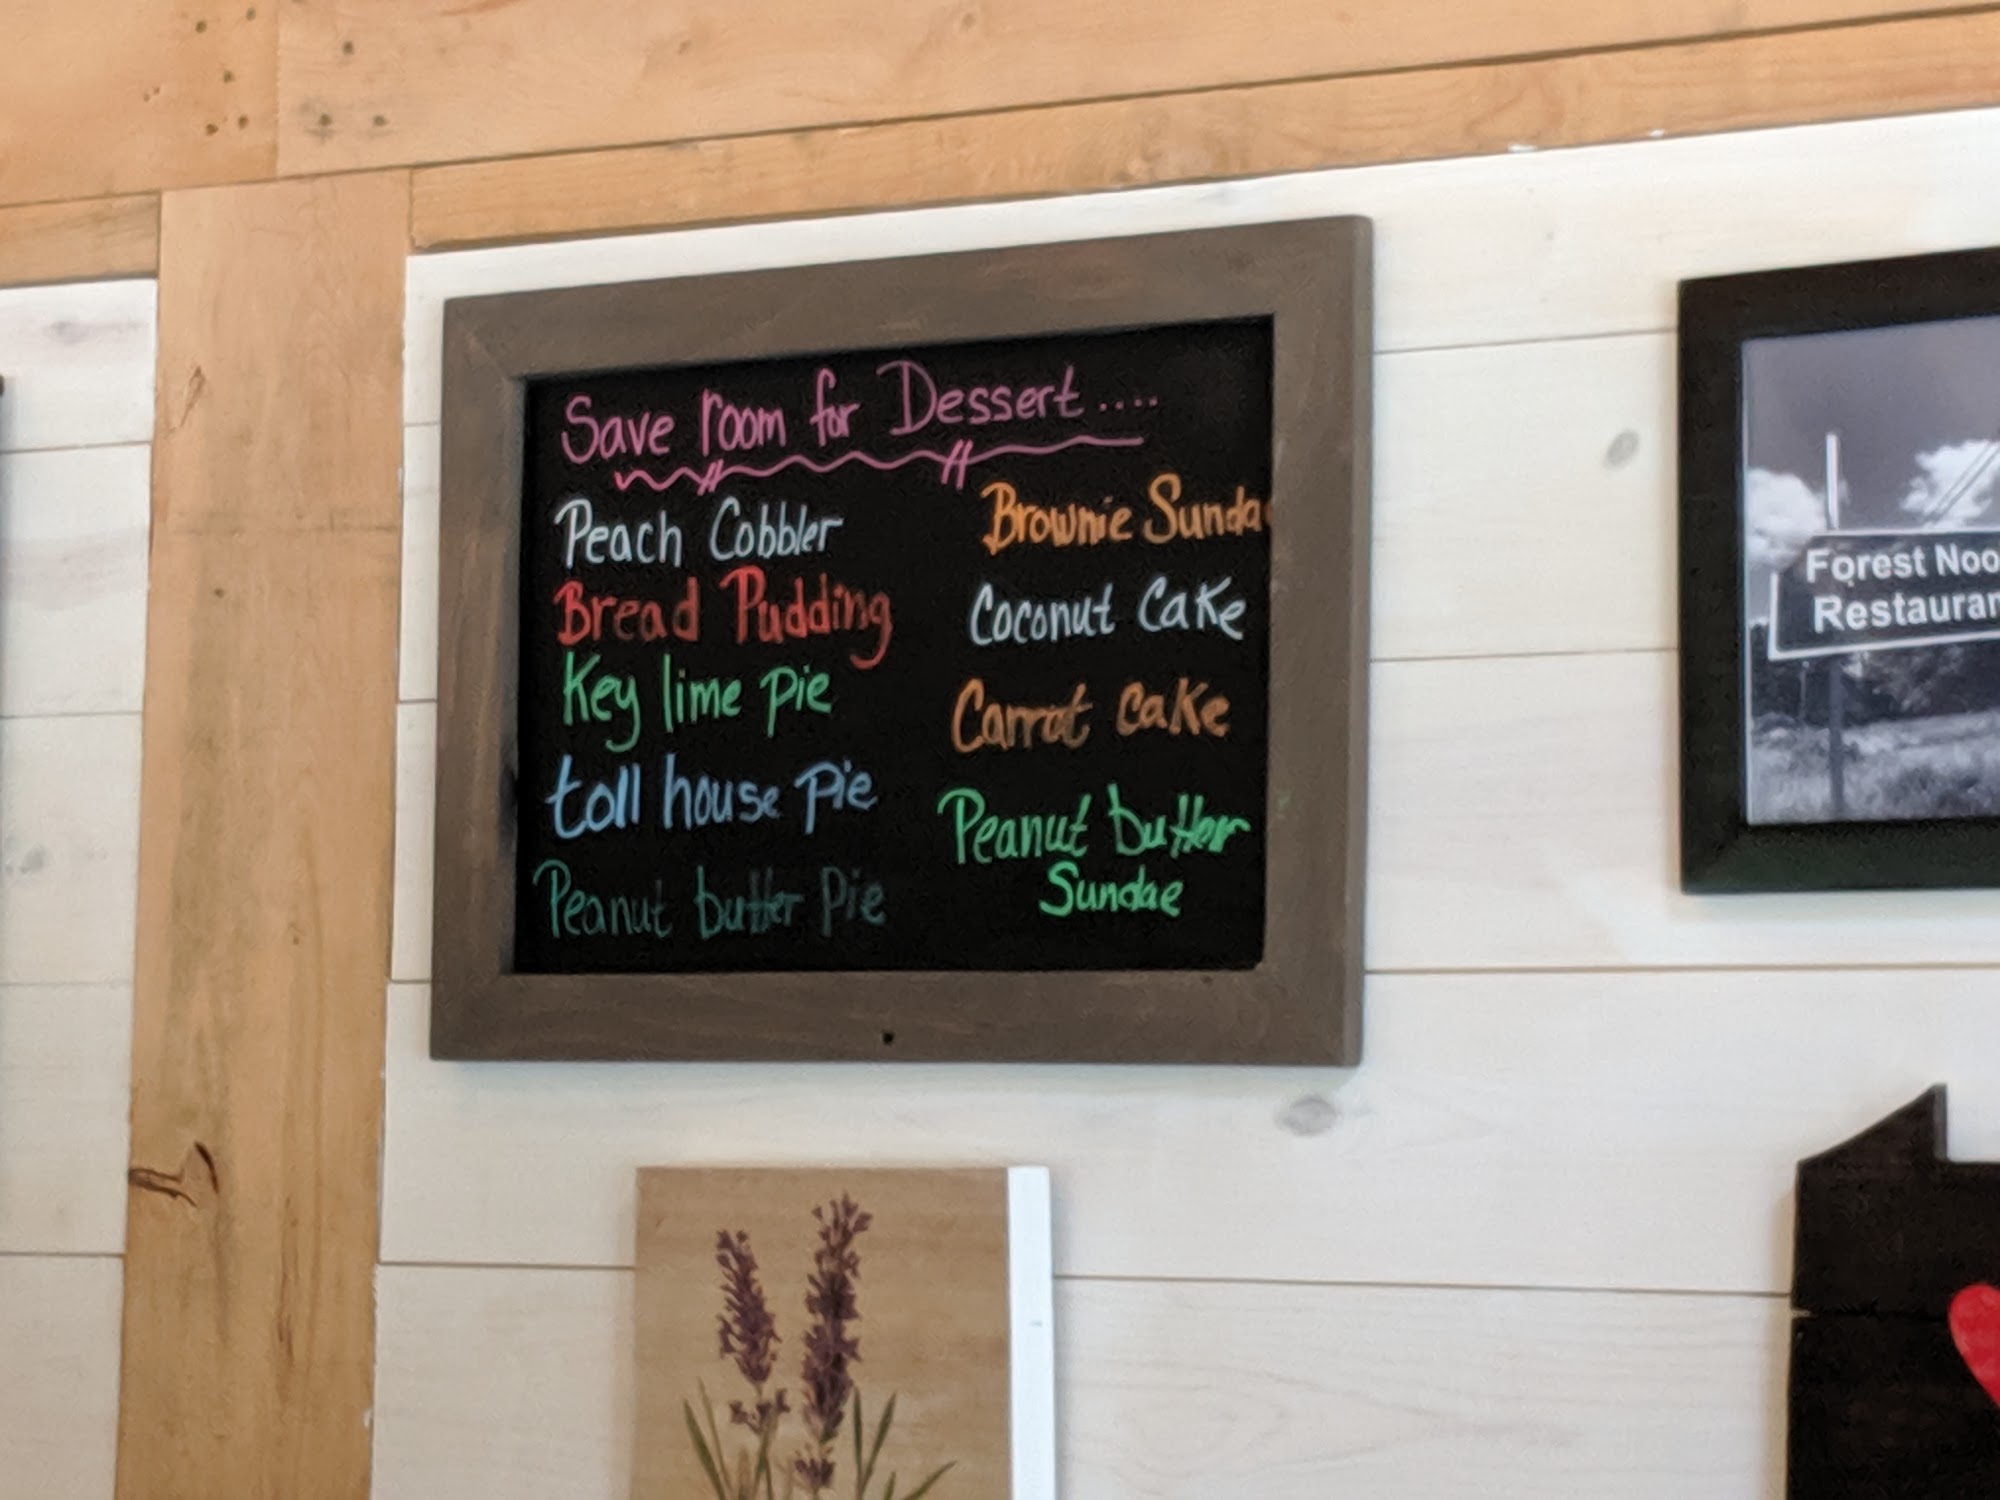 Save room for Dessert....
Peach Cobbler
Bread Pudding
Key lime pie
toll house pie
Peanut butter pie
Brownie Sunda
Coconut Cake
Carrot cake
Peanut butter
Sundae
Forest Noo
Restauran